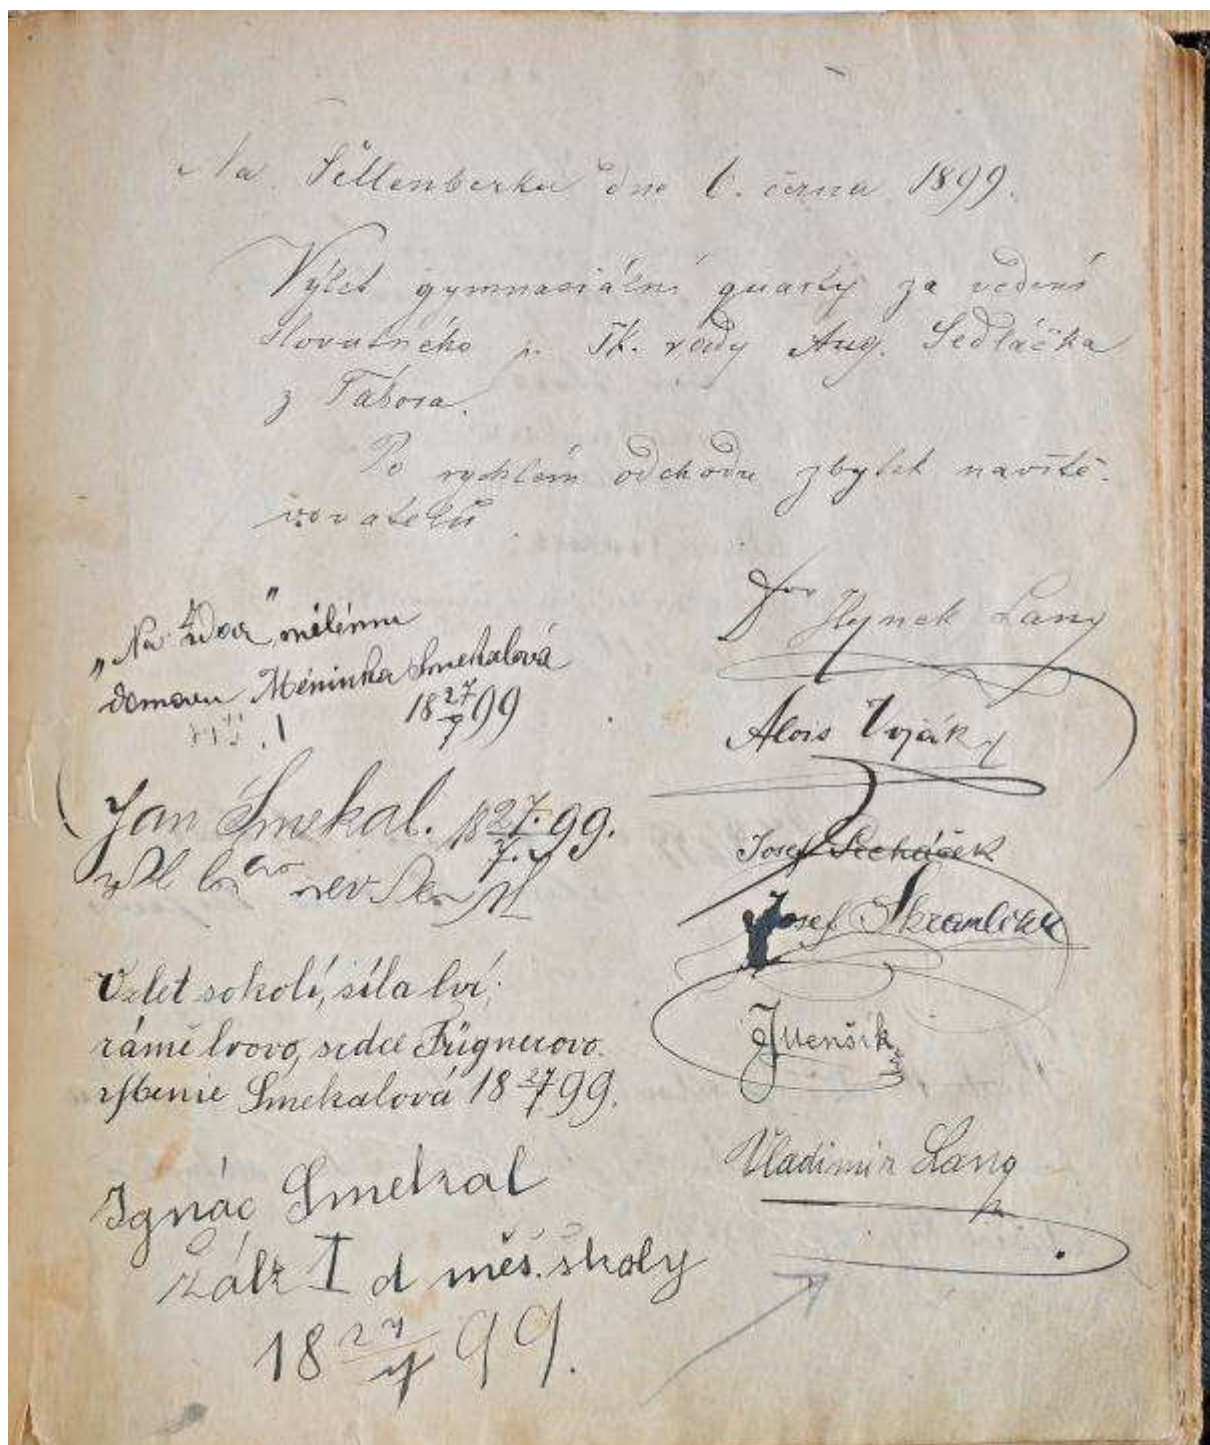 Na Šellenberku dne 6. června 1899.
Výlet gymnasiální quarty za vedení
slovutného p. šk. rady Aug. Sedláčka
z Tábora.
Po rychlém odchodu zbytek navště-
vovatelů
"Na zdar" milému
domovu Smekalová
18 27/7 99
Jan Smekal. 18 27./7. 99.
Vzlet sokolí, síla lví,
rámě lvovo, srdce Fügnerovo.
Smekalová 18 27/7 99.
Ignác Smekal
žák I d měš. školy
18 27/7 99.
Hynek Lang
Alois Voják
Josef
Josef Škramlík
Jul. Jenšík
Vladimír Lang